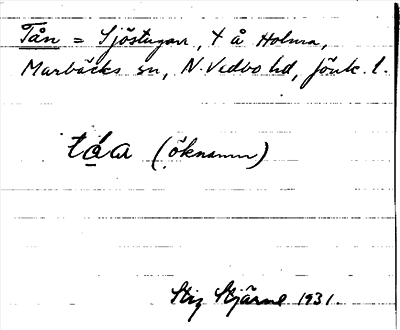 Tån = Sjöstugan, t å Holma,
Marbäcks sn, N. Vedbo hd, Jönk. l.
tåa (öknamn)
Stig Stjärne 1931.